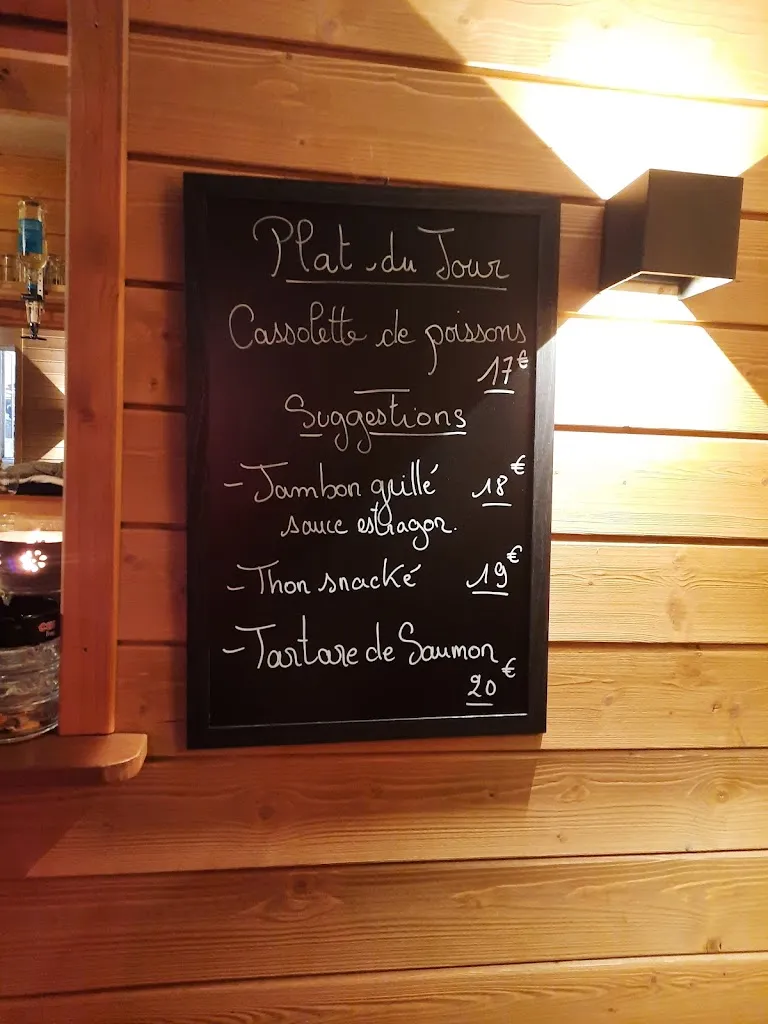 Plat du Jour
Cassolette de poissons
17€
Suggestions
- Jambon grillé 18€
sauce estragon.
- Thon snacké 19€
- Tartare de Saumon
20€